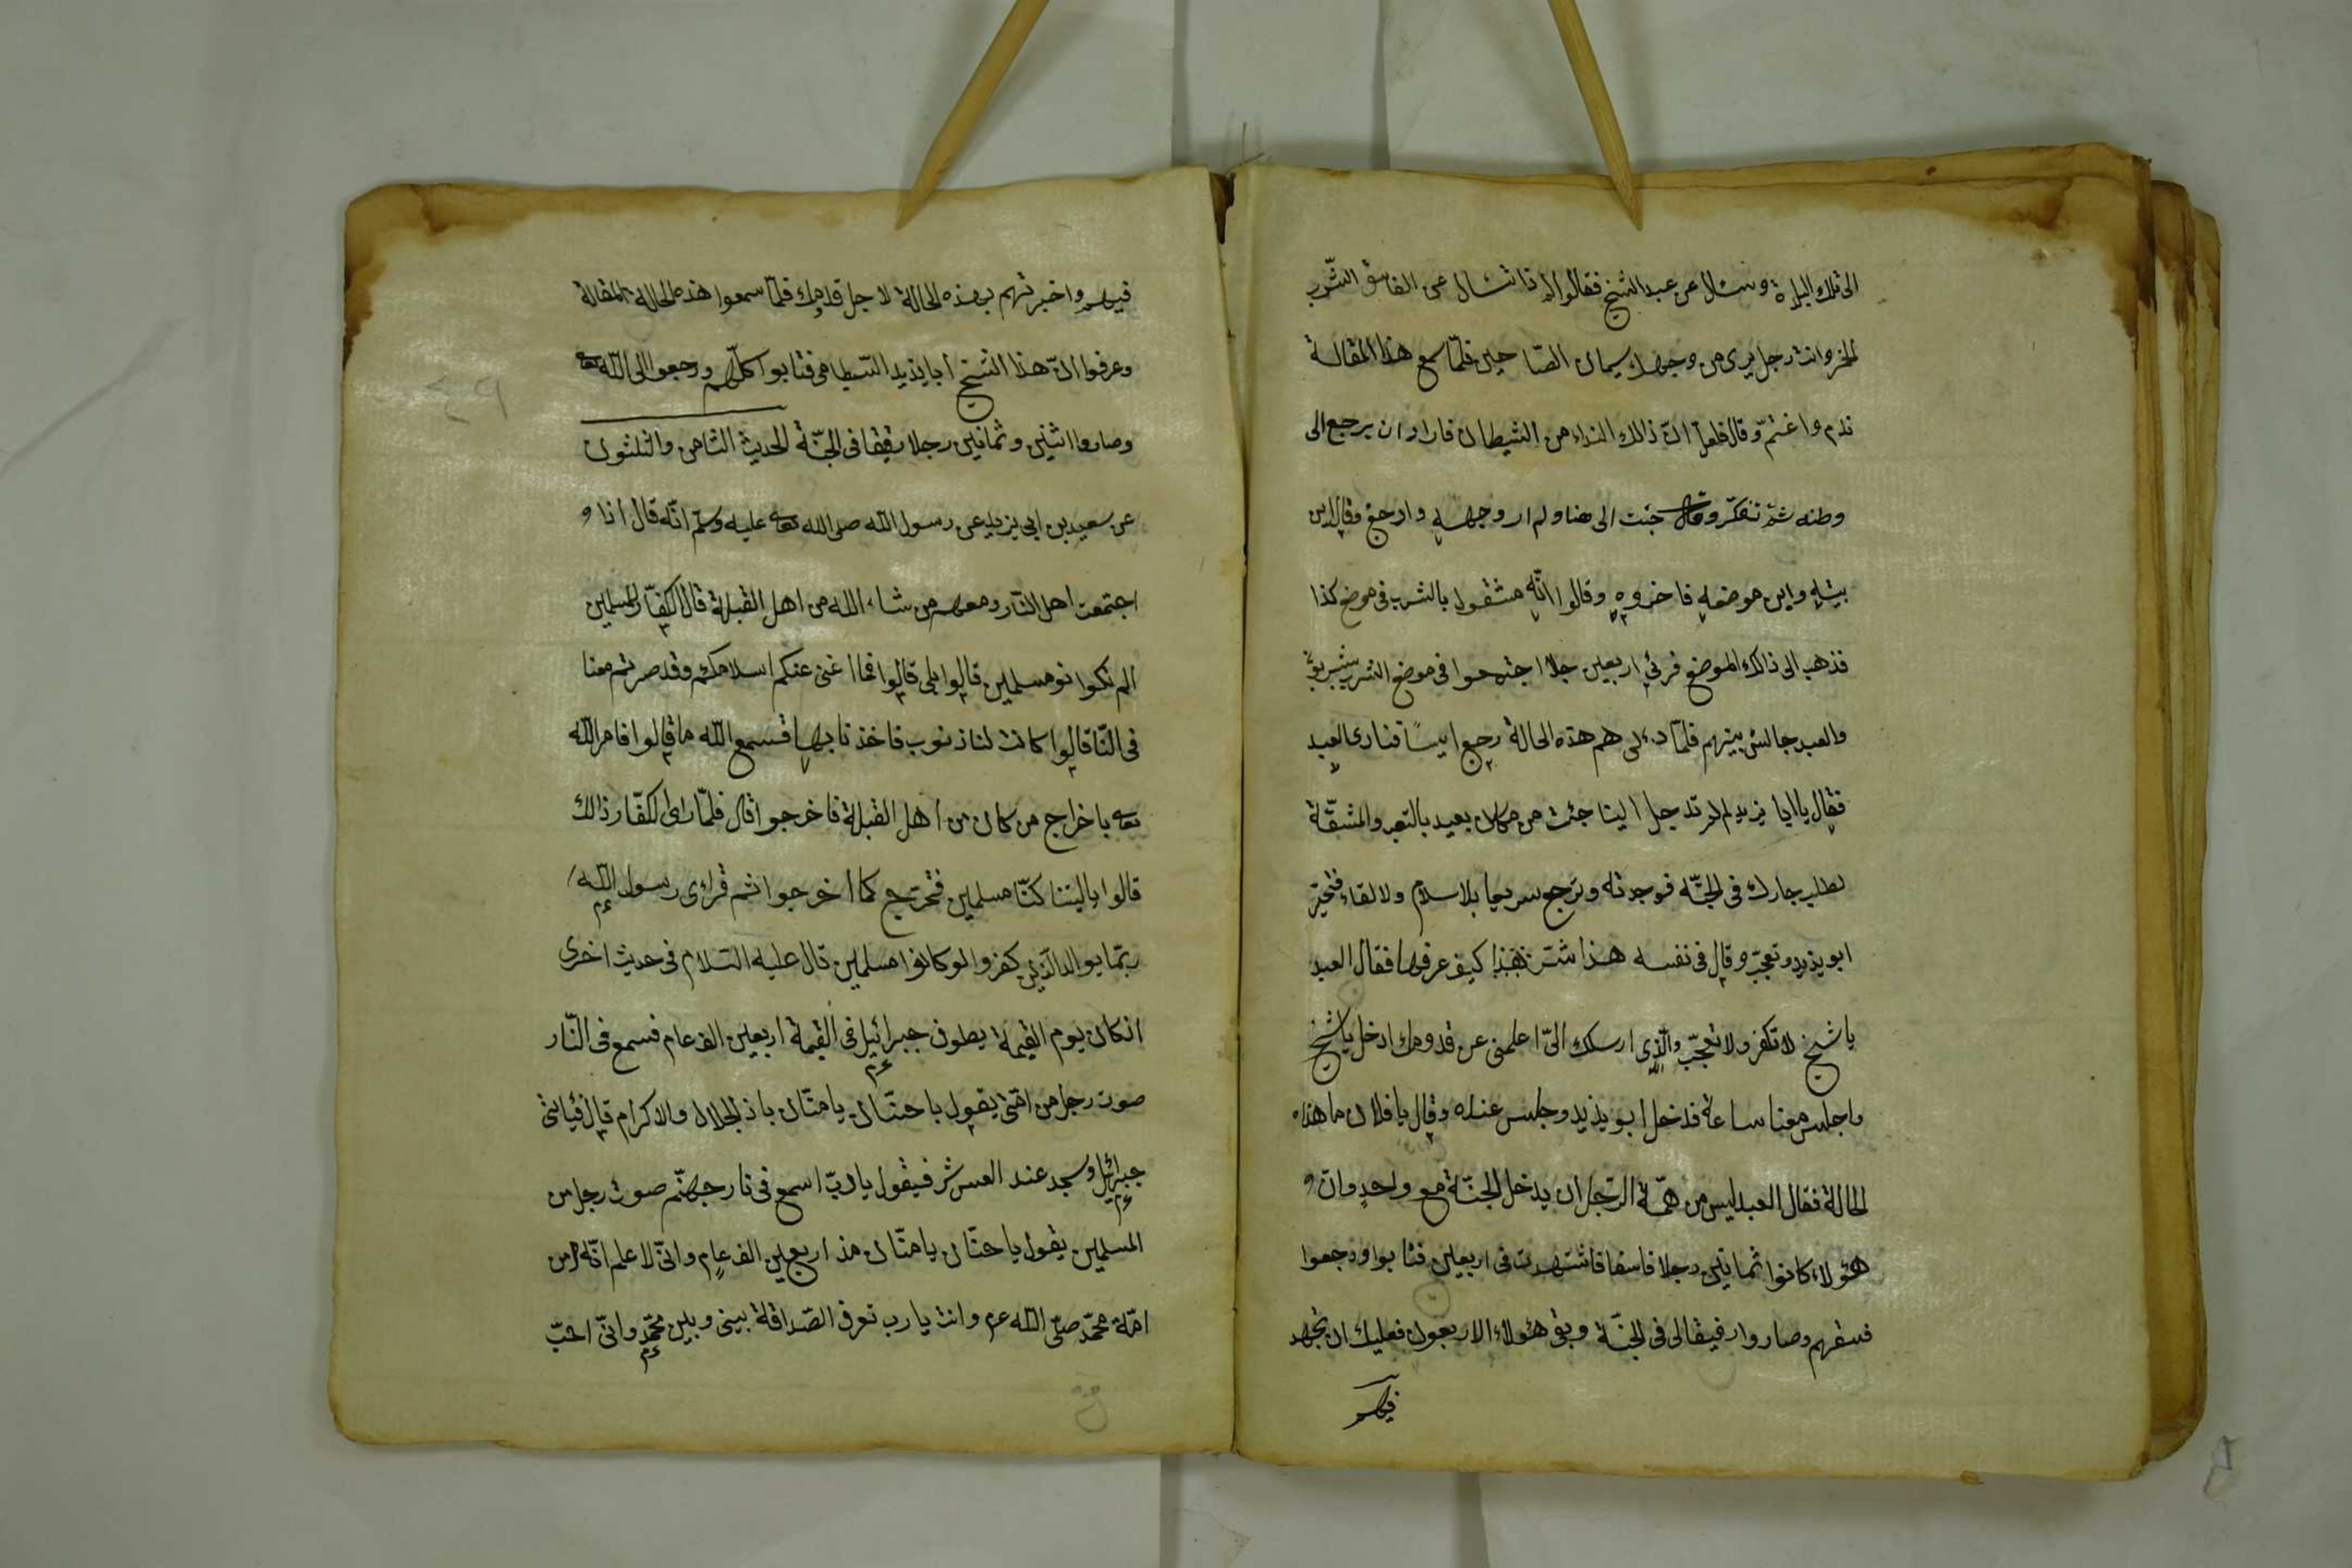 الى تلك البلدة وسئال عن عبد الشيخ فقالوا لم ذا تسئال عن الفاسق الشرب
الخمر وانت رجل يرى من وجهك سيمان الصالحين فلمّا سمع هذا المقالة
ندم واغتمّ وقال فلعل انّ ذالك النداء من الشيطان فاراد ان يرجع الى
وطنه ثمّ تفكّر وقال جئت الى هنا ولم ار وجهه وارجع وقال اين
بيته واين موضعه فاخبروه وقالوا انّه مشغول بالشرب فى موضع كذا
فذهب الى ذالك الموضع فرئى اربعين رجلا اجتمعوا فى موضع الشرب يشربون
والعبد جالس بينهم فلمّا رءى هم هذه الحالة رجع ايسًا فنادى العبد
فقال يا ابا يزيد لم لم تدخل الينا جئت من مكان بعيد بالتعب والمشقّة
لطلب جارك فى الجنّة فوجدته وترجع سريعا بلا سلام ولا لقاء فتحيّر
ابو يذيد وتعجّب وقال فى نفسه هذا سرّ كيف عرفها فقال العبد
يا شيخ لا تكفر ولا تعجّب والّذى ارسلك الىّ اعلمنى عن قدومك ادخل يا شيخ
واجلس معنا ساعة فدخل ابو يذيد وجلس عنده وقال يا فلان ما هذه
الحالة فقال العبد ليس من همّة الرّجل ان يدخل الجنّة مع واحد وان و
هؤلاء كانوا ثمانين رجلا فاسقا فاشتهدت فى اربعين فتابوا ورجعوا
فسقهم وصاروا رفيقا لى فى الجنّة وبقى هؤلاء الاربعون فعليك ان تجهد
فيهم
فيهم واخبرتهم بهذه الحالة لاجل قدومك فلمّا سمعوا هذه الحالة المقالة
وعرفوا انّ هذا الشيخ ابا يذيد البسطامى فتابوا كلّهم ورجعوا الى اللّه تعالى
وصاروا اثنين وثمانين رجلا رفيقا فى الجنّة الحديث الثامن والثلثون
عن سعيد بن ابى يزيد عن رسول اللّه صلى الله تعالى عليه وسلّم انّه قال اذا و
اجتمعت اهل النّار ومعهم من شاء الله من اهل القبلة قال الكفّار للمسلمين
الم تكوا نو مسلمين قالوا بلى قالوا فما اغنى عنكم اسلامكم وقد صرتم معنا
فى النّا قالوا كانت لنا ذنوب فاخذنا بها فسمع اللّه ما قالوا فامر اللّه
تعالى باخراج من كان من اهل القبلة فاخرجوا قال فلمّا راى الكفّار ذالك
قالوا ياليتنا كنّا مسلمين فنخرج كما اخرجوا ثم قراى رسول اللّه
ربّما يوالد الّذين كفروا لو كانوا مسلمين قال عليه السّلام فى حديث اخرى
اذ كان يوم القيمة يطوف جبرائيل فى القيمة اربعين الف عام فسمع فى النّار
صوت رجل من امّتى يقول يا حنّان يا منّان يا ذالجلال والاكرام قال فيأتى
جبرائيل وسجد عند العرش فيقول يا ربّ اسمع فى نار جهنّم صوت رجل من
المسلمين يقول يا حنّان يا منّان منذ اربعين الف عام وانّى لاعلم انّه من
امّة محمّد صلّى اللّه عم وانت يا رب تعرف الصّداقة بينى وبين محمّد وانّى احبّ